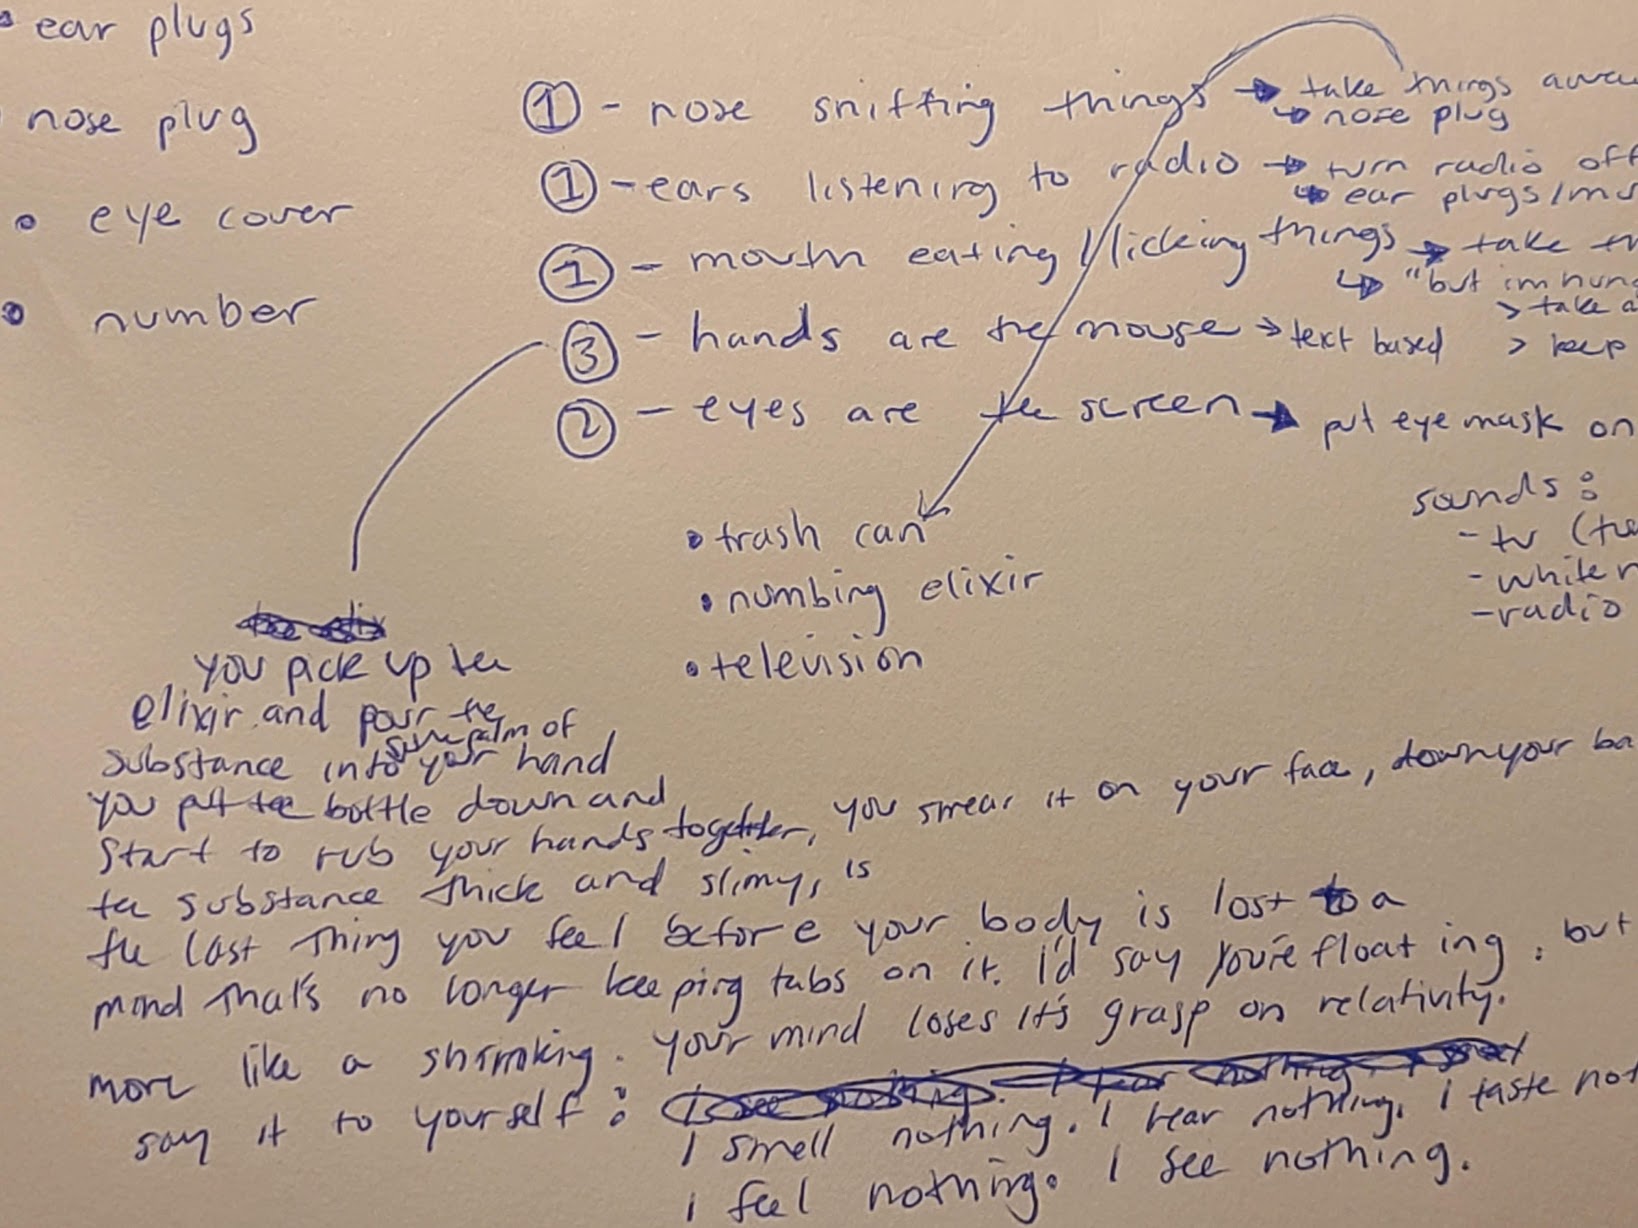 • ear plugs
• nose plug
• eye cover
• number
① - nose sniffing things → take things away
↳ nose plug
① - ears listening to radio → turn radio off
↳ ear plugs/mu
① - mouth eating/licking things → take th
↳ "but im hung
> take a
③ - hands are the mouse → text based > keep
② - eyes are the screen → put eye mask on
sounds:
- tv (tu
- white n
- radio
• trash can
• numbing elixir
• television
you pick up the
elixir and pour the
substance into the palm of your hand
you put the bottle down and
start to rub your hands together, you smear it on your face, down your ba
the substance thick and slimy, is
the last thing you feel before your body is lost to a
mind that's no longer keeping tabs on it. I'd say you're floating, but
more like a shrinking. your mind loses it's grasp on relativity.
say it to yourself:
I smell nothing. I hear nothing. I taste not
I feel nothing. I see nothing.